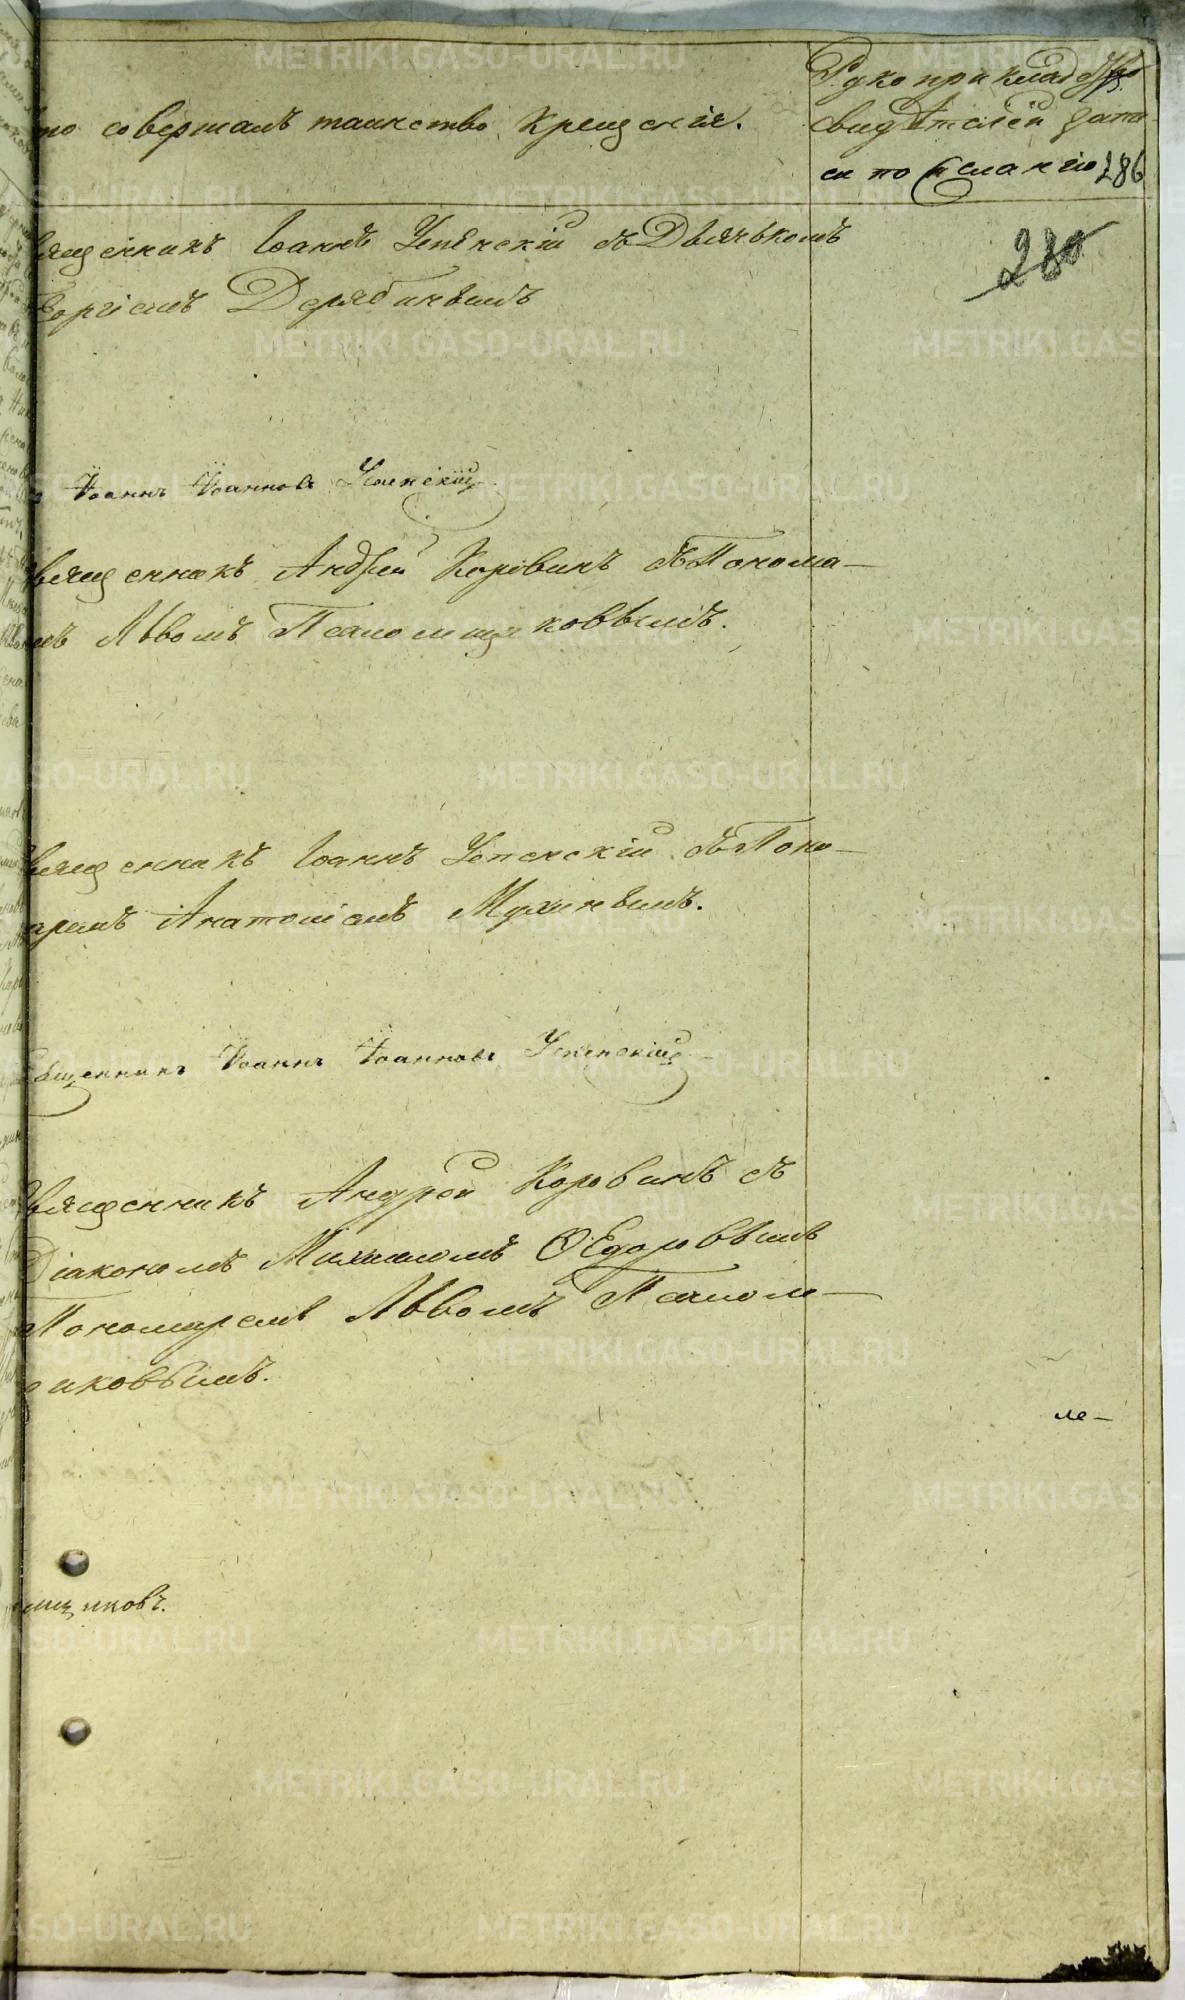 то совершалъ таинство Крещенія.
Рукоприкладство
свидѣтелей запи-
си по желанію 286
280
вященникъ Іоаннъ Успенскій съ Дьячькомъ
еоргіемъ Дерябинымъ
Іоаннъ Іоанновъ Успенскій
вященникъ Андрей Коровинъ съ Понома-
мъ Львомъ Псаломщиковымъ.
вященникъ Іоаннъ Успенскій съ Поно-
аремъ Анатоліемъ Мухинымъ.
Священникъ Іоаннъ Іоанновъ Успенскій
вященникъ Андрей Коровинъ съ
Діакономъ Михаиломъ Ѳедоровымъ
Пономаремъ Львомъ Псалом-
щиковымъ.
ле-
омщиковъ.
METRIKI.GASO-URAL.RU